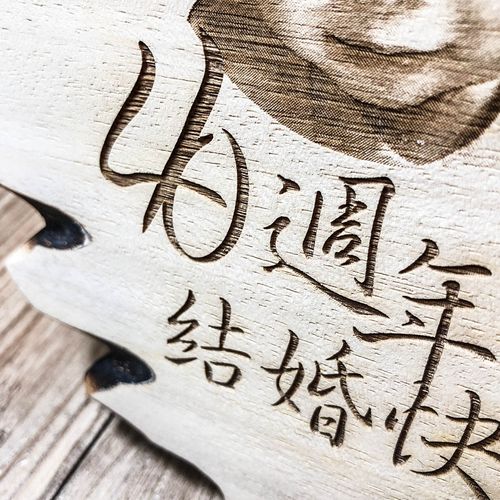 40週年
結婚快